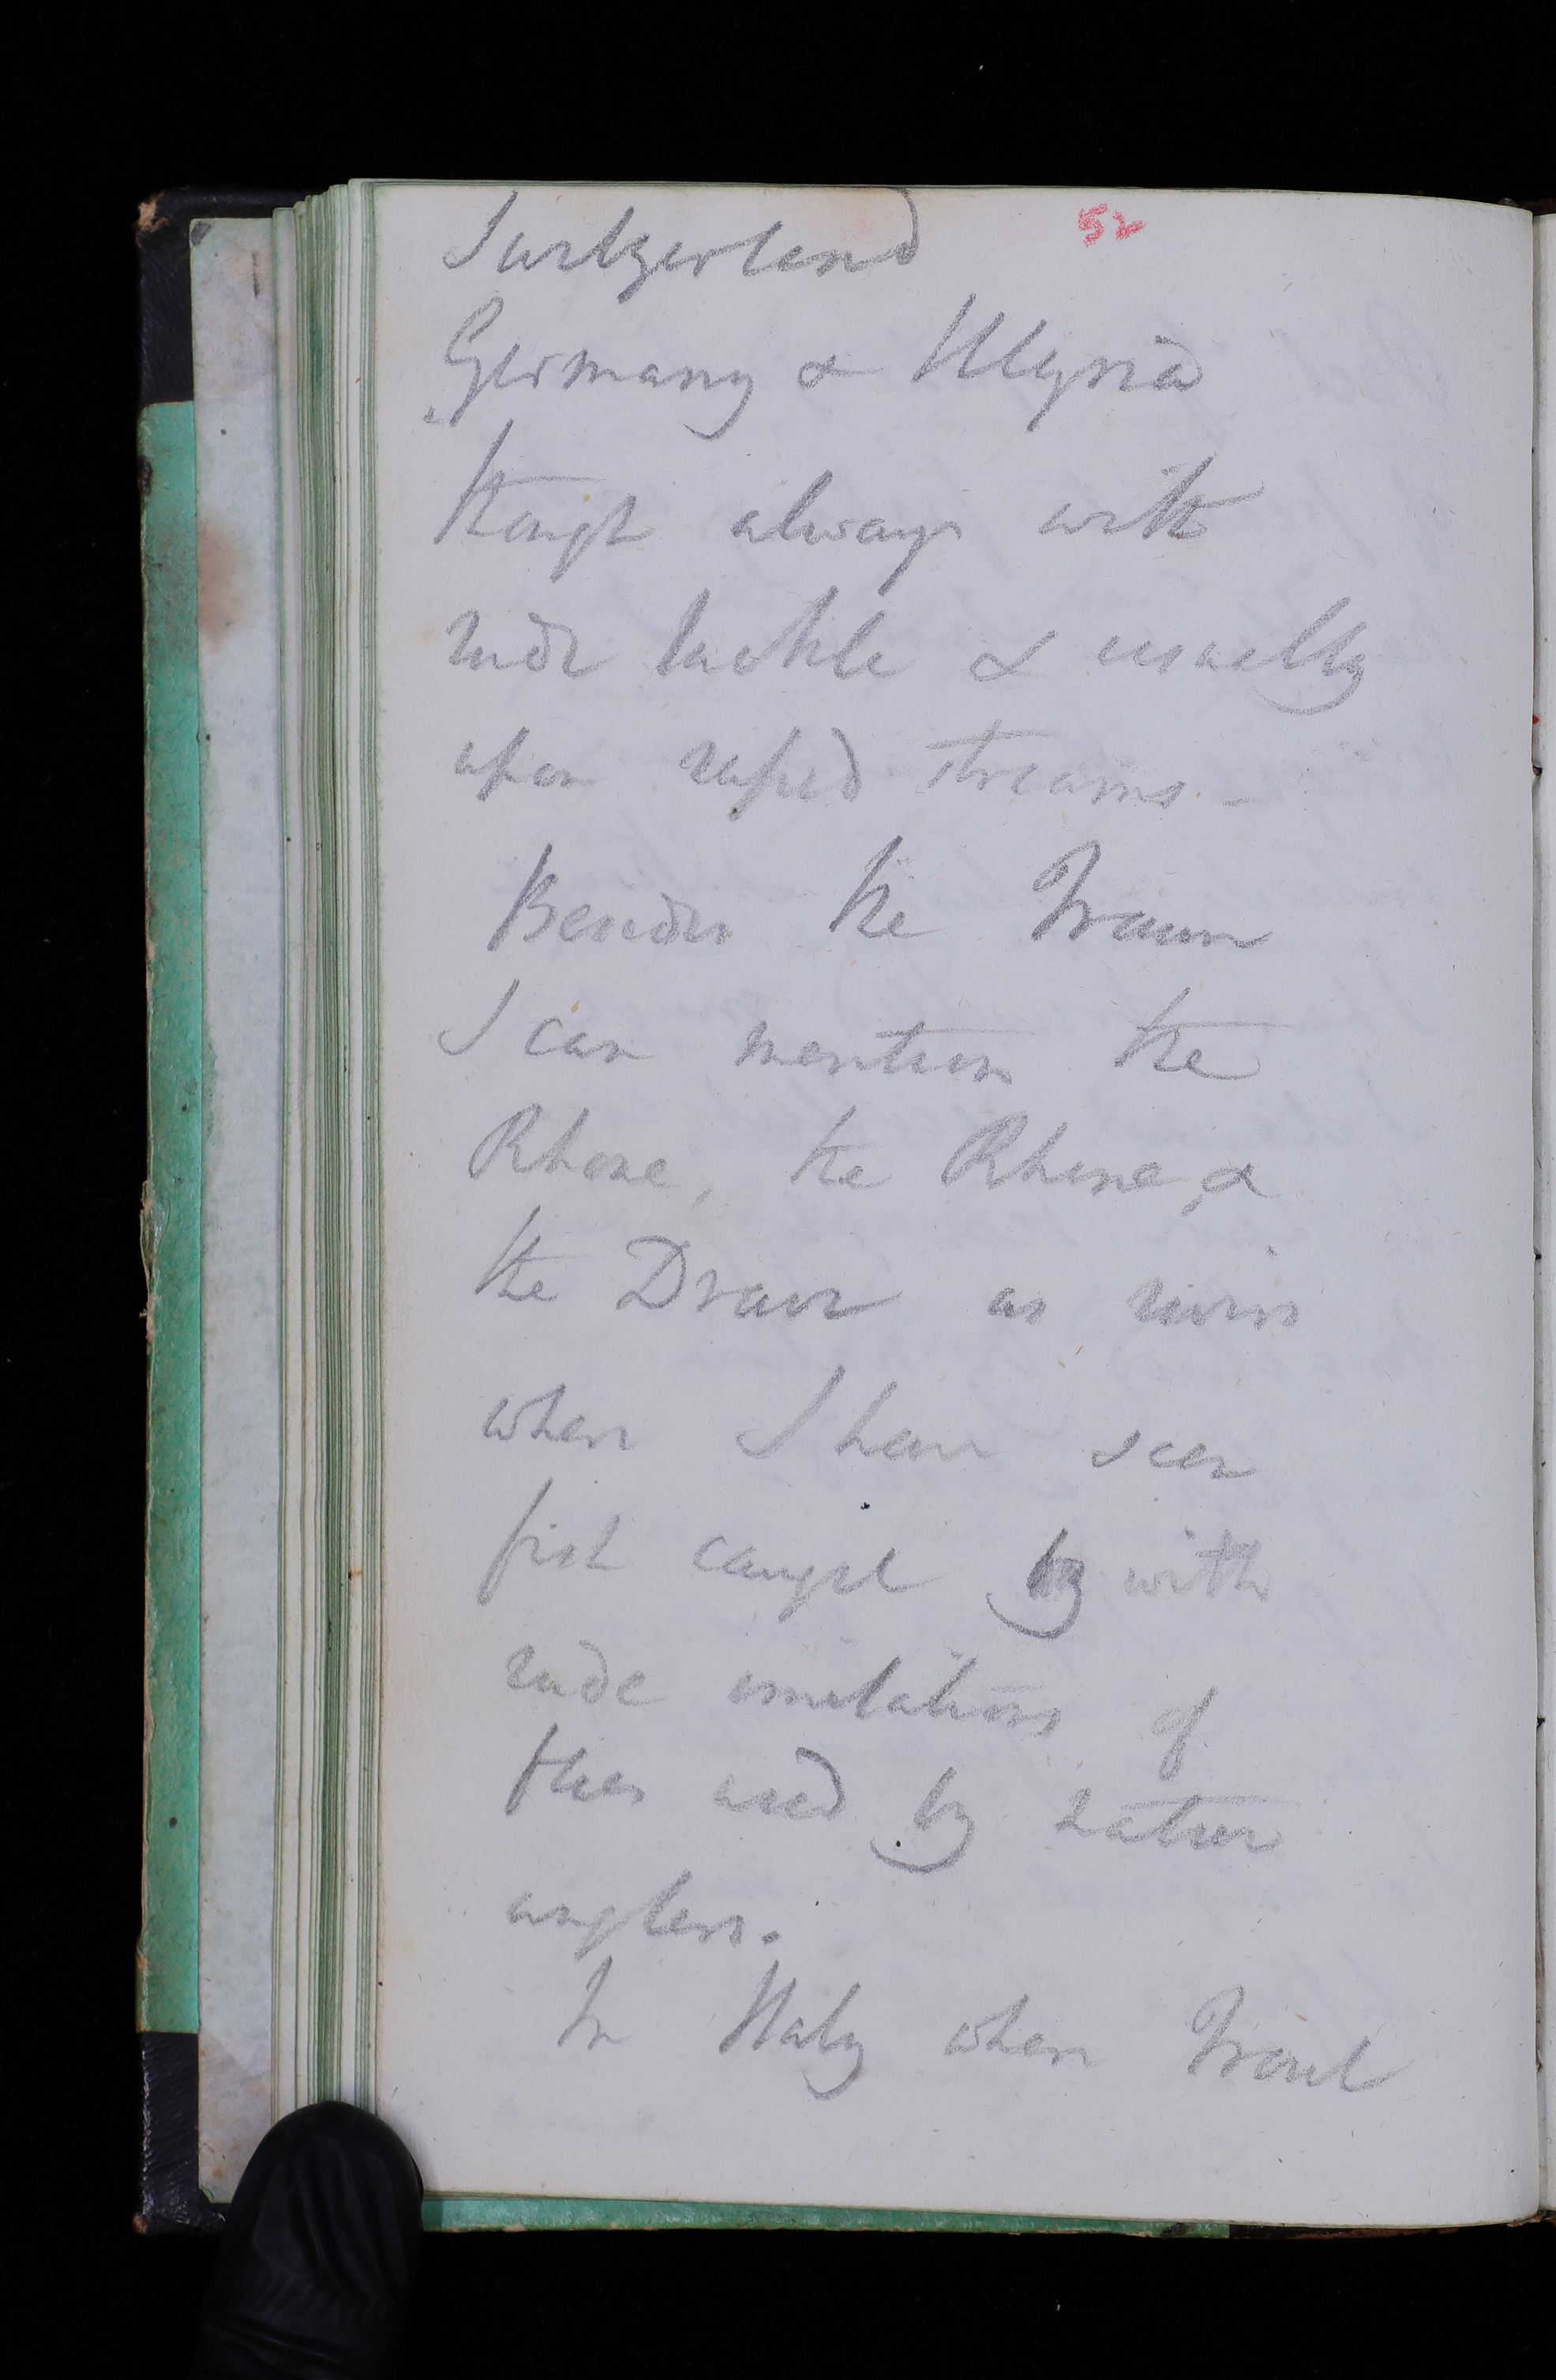 52
Switzerland
Germany & Illyria
though always with
rude tackle & usually
upon rapid streams. -
Besides the Traun
I can mention the
Rhone, the Rhine, &
the Drave as rivers
where I have seen
fish caught by with
rude imitations of
flies used by native
anglers.
In Italy where Trout